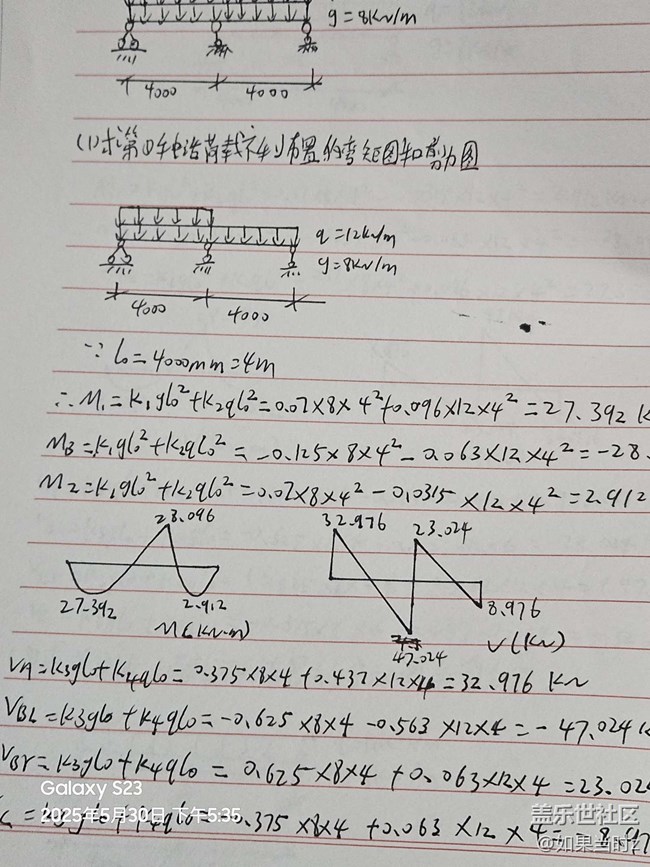 g=8KN/m
4000 4000
(1)求第①种活荷载不利布置的弯矩图和剪力图
q=12KN/m
g=8KN/m
4000 4000
∵ l₀=4000mm=4m
∴M₁=K₁gl₀²+K₂ql₀²=0.07×8×4²+0.096×12×4²=27.392 K
M_B=K₁gl₀²+K₂ql₀²=-0.125×8×4²-0.063×12×4²=-28.
M₂=K₁gl₀²+K₂ql₀²=0.07×8×4²-0.0315×12×4²=2.912
28.096 32.976 23.024
27.392 2.912 8.976
M(KN·m) 47.024 V(KN)
V_A=K₃gl₀+K₄ql₀=0.375×8×4+0.437×12×4=32.976 KN
V_BL=K₃gl₀+K₄ql₀=-0.625×8×4-0.563×12×4=-47.024 K
V_Br=K₃gl₀+K₄ql₀=0.625×8×4+0.063×12×4=23.024
0.375×8×4+0.063×12×4=-8.97
Galaxy S23
2025年5月30日 下午5:35
盖乐世社区
@如果当时z